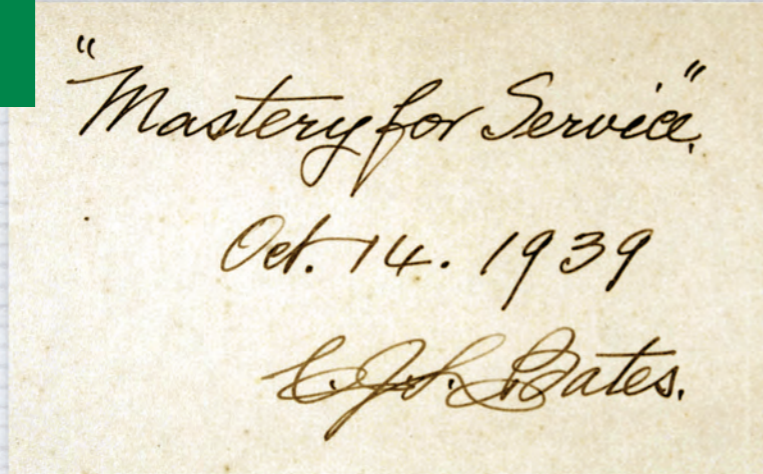 "Mastery for Service".
Oct. 14. 1939
C.J.L. Bates.